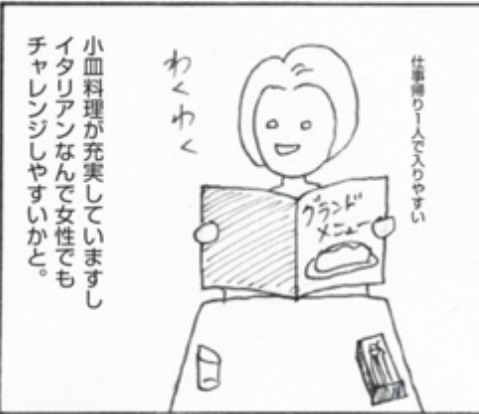 仕事帰り1人で入りやすい
わくわく
グランド
メニュー
小皿料理が充実していますし
イタリアンなんで女性でも
チャレンジしやすいかと。